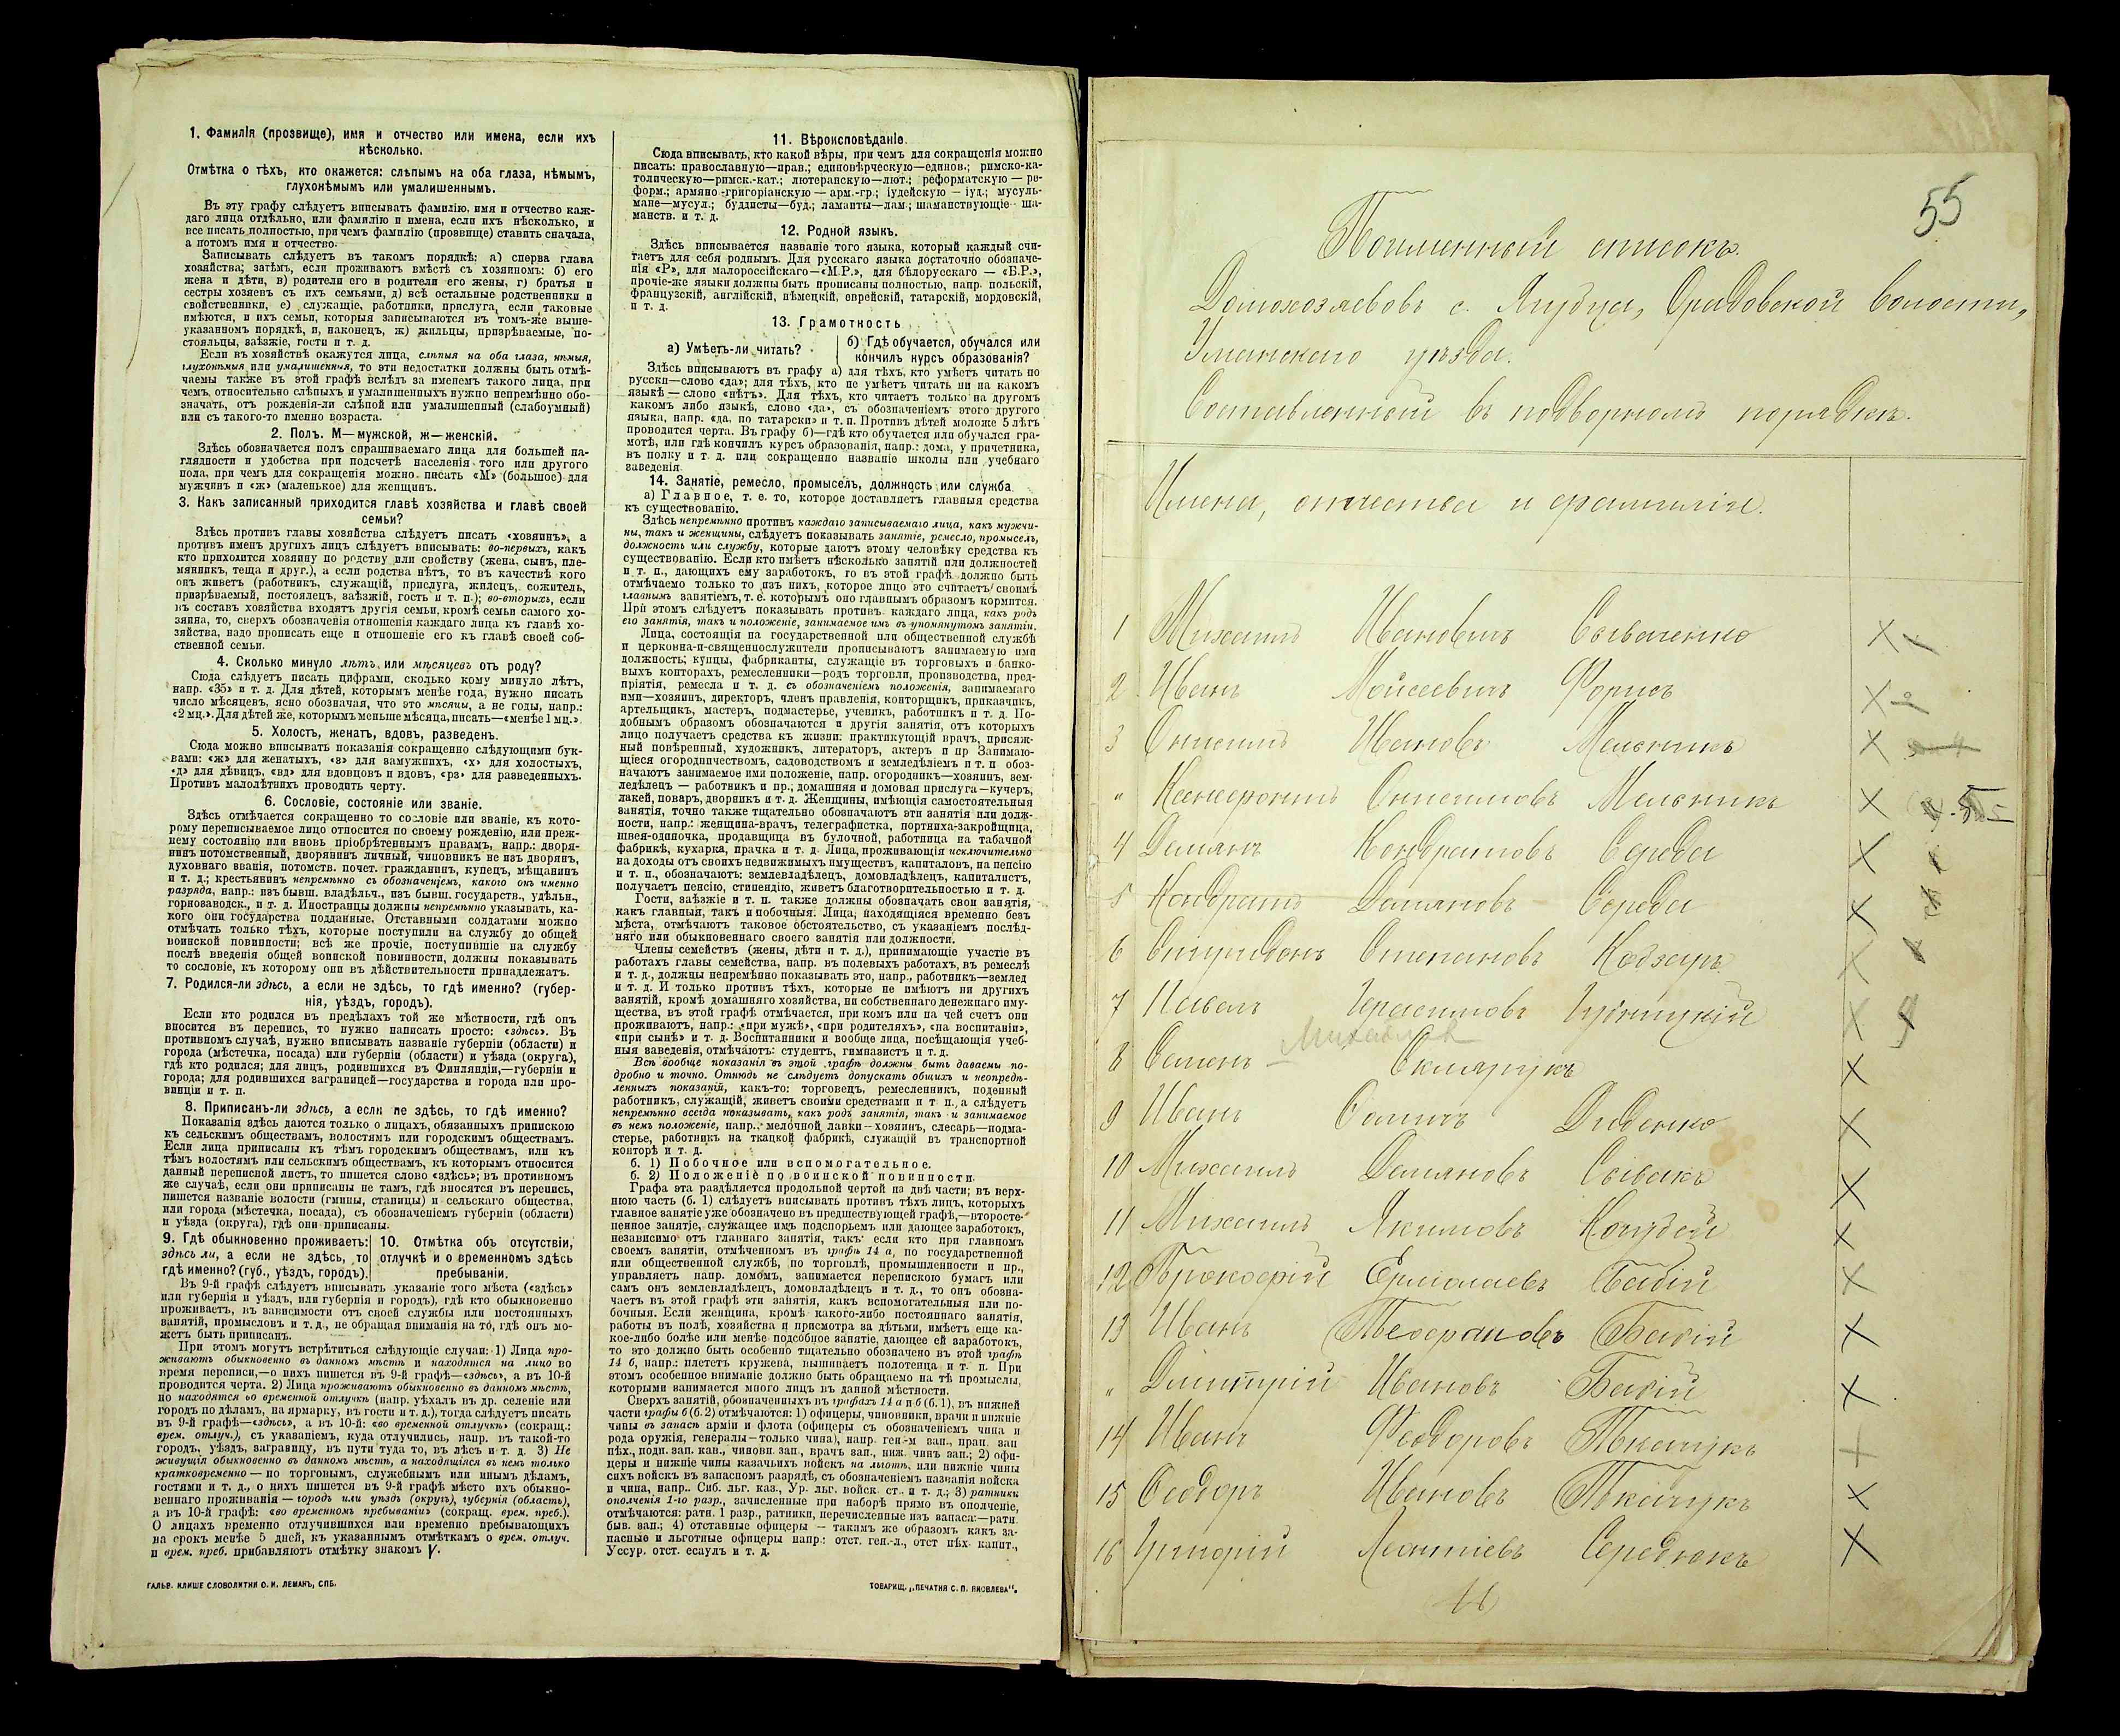 1. Фамилія (прозвище), имя и отчество или имена, если ихъ
нѣсколько.
Отмѣтка о тѣхъ, кто окажется: слѣпымъ на оба глаза, нѣмымъ,
глухонѣмымъ или умалишеннымъ.
Въ эту графу слѣдуетъ вписывать фамилію, имя и отчество каж-
даго лица отдѣльно, или фамилію и имена, если ихъ нѣсколько, и
все писать полностью, при чемъ фамилію (прозвище) ставить сначала,
а потомъ имя и отчество.
Записывать слѣдуетъ въ такомъ порядкѣ: а) сперва глава
хозяйства; затѣмъ, если проживаютъ вмѣстѣ съ хозяиномъ: б) его
жена и дѣти, в) родители его и родители его жены, г) братья и
сестры хозяевъ съ ихъ семьями, д) всѣ остальные родственники и
свойственники, е) служащіе, работники, прислуга, если таковые
имѣются, и ихъ семьи, которыя записываются въ томъ-же выше-
указанномъ порядкѣ, и, наконецъ, ж) жильцы, призрѣваемые, по-
стояльцы, заѣзжіе, гости и т. д.
Если въ хозяйствѣ окажутся лица, слѣпыя на оба глаза, нѣмыя,
глухонѣмыя или умалишенныя, то эти недостатки должны быть отмѣ-
чаемы также въ этой графѣ вслѣдъ за именемъ такого лица, при
чемъ относительно слѣпыхъ и умалишенныхъ нужно непремѣнно обо-
значать, отъ рожденія-ли слѣпой или умалишенный (слабоумный)
или съ такого-то именно возраста.
2. Полъ. М—мужской, ж—женскій.
Здѣсь обозначается полъ спрашиваемаго лица для большей на-
глядности и удобства при подсчетѣ населенія того или другого
пола, при чемъ для сокращенія можно писать «М» (большое) для
мужчинъ и «ж» (маленькое) для женщинъ.
3. Какъ записанный приходится главѣ хозяйства и главѣ своей
семьи?
Здѣсь противъ главы хозяйства слѣдуетъ писать «хозяинъ», а
противъ именъ другихъ лицъ слѣдуетъ вписывать: во-первыхъ, какъ
кто приходится хозяину по родству или свойству (жена, сынъ, пле-
мянникъ, теща и друг.), а если родства нѣтъ, то въ качествѣ кого
онъ живетъ (работникъ, служащій, прислуга, жилецъ, сожитель,
призрѣваемый, постоялецъ, заѣзжій, гость и т. п.); во-вторыхъ, если
въ составъ хозяйства входятъ другія семьи, кромѣ семьи самого хо-
зяина, то, сверхъ обозначенія отношенія каждаго лица къ главѣ хо-
зяйства, надо прописать еще и отношеніе его къ главѣ своей соб-
ственной семьи.
4. Сколько минуло лѣтъ или мѣсяцевъ отъ роду?
Сюда слѣдуетъ писать цифрами, сколько кому минуло лѣтъ,
напр. «35» и т. д. Для дѣтей, которымъ менѣе года, нужно писать
число мѣсяцевъ, ясно обозначая, что это мѣсяцы, а не годы, напр.:
«2 мц.». Для дѣтей же, которымъ меньше мѣсяца, писать—«менѣе 1 мц.».
5. Холостъ, женатъ, вдовъ, разведенъ.
Сюда можно вписывать показанія сокращенно слѣдующими бук-
вами: «ж» для женатыхъ, «з» для замужнихъ, «х» для холостыхъ,
«д» для дѣвицъ, «вд» для вдовцовъ и вдовъ, «рз» для разведенныхъ.
Противъ малолѣтнихъ проводить черту.
6. Сословіе, состояніе или званіе.
Здѣсь отмѣчается сокращенно то сословіе или званіе, къ кото-
рому переписываемое лицо относится по своему рожденію, или преж-
нему состоянію или вновь пріобрѣтеннымъ правамъ, напр.: дворя-
нинъ потомственный, дворянинъ личный, чиновникъ не изъ дворянъ,
духовнаго званія, потомств. почет. гражданинъ, купецъ, мѣщанинъ
и т. д.; крестьянинъ непремѣнно съ обозначеніемъ, какого онъ именно
разряда, напр.: изъ бывш. владѣльч., изъ бывш. государств., удѣльн.,
горнозаводск., и т. д. Иностранцы должны непремѣнно указывать, ка-
кого они государства подданные. Отставными солдатами можно
отмѣчать только тѣхъ, которые поступили на службу до общей
воинской повинности; всѣ же прочіе, поступившіе на службу
послѣ введенія общей воинской повинности, должны показывать
то сословіе, къ которому они въ дѣйствительности принадлежатъ.
7. Родился-ли здѣсь, а если не здѣсь, то гдѣ именно? (губер-
нія, уѣздъ, городъ).
Если кто родился въ предѣлахъ той же мѣстности, гдѣ онъ
вносится въ перепись, то нужно написать просто: «здѣсь». Въ
противномъ случаѣ, нужно вписывать названіе губерніи (области) и
города (мѣстечка, посада) или губерніи (области) и уѣзда (округа),
гдѣ кто родился; для лицъ, родившихся въ Финляндіи,—губерніи и
города; для родившихся заграницей—государства и города или про-
винціи и т. п.
8. Приписанъ-ли здѣсь, а если не здѣсь, то гдѣ именно?
Показанія здѣсь даются только о лицахъ, обязанныхъ припискою
къ сельскимъ обществамъ, волостямъ или городскимъ обществамъ.
Если лица приписаны къ тѣмъ городскимъ обществамъ, или къ
тѣмъ волостямъ или сельскимъ обществамъ, къ которымъ относится
данный переписной листъ, то пишется слово «здѣсь»; въ противномъ
же случаѣ, если они приписаны не тамъ, гдѣ вносятся въ перепись,
пишется названіе волости (гмины, станицы) и сельскаго общества,
или города (мѣстечка, посада), съ обозначеніемъ губерніи (области)
и уѣзда (округа), гдѣ они приписаны.
9. Гдѣ обыкновенно проживаетъ:
здѣсь ли, а если не здѣсь, то
гдѣ именно? (губ., уѣздъ, городъ).
10. Отмѣтка объ отсутствіи,
отлучкѣ и о временномъ здѣсь
пребываніи.
Въ 9-й графѣ слѣдуетъ вписывать указаніе того мѣста («здѣсь»
или губернія и уѣздъ, или губернія и городъ), гдѣ кто обыкновенно
проживаетъ, въ зависимости отъ своей службы или постоянныхъ
занятій, промысловъ и т. д., не обращая вниманія на то, гдѣ онъ мо-
жетъ быть приписанъ.
При этомъ могутъ встрѣтиться слѣдующіе случаи: 1) Лица про-
живаютъ обыкновенно въ данномъ мѣстѣ и находятся на лицо во
время переписи,—о нихъ пишется въ 9-й графѣ—«здѣсь», а въ 10-й
проводится черта. 2) Лица проживаютъ обыкновенно въ данномъ мѣстѣ,
но находятся во временной отлучкѣ (напр. уѣхалъ въ др. селеніе или
городъ по дѣламъ, на ярмарку, въ гости и т. д.), тогда слѣдуетъ писать
въ 9-й графѣ—«здѣсь», а въ 10-й: «во временной отлучкѣ» (сокращ.:
врем. отлуч.), съ указаніемъ, куда отлучились, напр. въ такой-то
городъ, уѣздъ, заграницу, въ пути туда то, въ лѣсъ и т. д. 3) Не
живущія обыкновенно въ данномъ мѣстѣ, а находящіяся въ немъ только
кратковременно — по торговымъ, служебнымъ или инымъ дѣламъ,
гостями и т. д., о нихъ пишется въ 9-й графѣ мѣсто ихъ обыкно-
веннаго проживанія — городъ или уѣздъ (округъ), губернія (область),
а въ 10-й графѣ: «во временномъ пребываніи» (сокращ. врем. преб.).
О лицахъ временно отлучившихся или временно пребывающихъ
на срокъ менѣе 5 дней, къ указаннымъ отмѣткамъ о врем. отлуч.
и врем. преб. прибавляютъ отмѣтку знакомъ V.
ГАЛЬВ. КЛИШЕ СЛОВОЛИТНИ О. И. ЛЕМАНЪ, СПБ.
11. Вѣроисповѣданіе.
Сюда вписывать, кто какой вѣры, при чемъ для сокращенія можно
писать: православную—прав.; единовѣрческую—единов.; римско-ка-
толическую—римск.-кат.; лютеранскую—лют.; реформатскую — ре-
форм.; армяно-григоріанскую — арм.-гр.; іудейскую — іуд.; мусуль-
мане—мусул.; буддисты—буд.; ламаиты—лам.; шаманствующіе—ша-
манств. и т. д.
12. Родной языкъ.
Здѣсь вписывается названіе того языка, который каждый счи-
таетъ для себя роднымъ. Для русскаго языка достаточно обозначе-
нія «Р», для малороссійскаго—«М.Р.», для бѣлорусскаго — «Б.Р.»,
прочіе-же языки должны быть прописаны полностью, напр. польскій,
французскій, англійскій, нѣмецкій, еврейскій, татарскій, мордовскій,
и т. д.
13. Грамотность
а) Умѣетъ-ли читать?
б) Гдѣ обучается, обучался или
кончилъ курсъ образованія?
Здѣсь вписываютъ въ графу а) для тѣхъ, кто умѣетъ читать по
русски—слово «да»; для тѣхъ, кто не умѣетъ читать ни на какомъ
языкѣ — слово «нѣтъ». Для тѣхъ, кто читаетъ только на другомъ
какомъ либо языкѣ, слово «да», съ обозначеніемъ этого другого
языка, напр. «да, по татарски» и т. п. Противъ дѣтей моложе 5 лѣтъ
проводится черта. Въ графу б)—гдѣ кто обучается или обучался гра-
мотѣ, или гдѣ кончилъ курсъ образованія, напр.: дома, у причетника,
въ полку и т. д. или сокращенно названіе школы или учебнаго
заведенія.
14. Занятіе, ремесло, промыселъ, должность или служба
а) Главное, т. е. то, которое доставляетъ главныя средства
къ существованію.
Здѣсь непремѣнно противъ каждаго записываемаго лица, какъ мужчи-
ны, такъ и женщины, слѣдуетъ показывать занятіе, ремесло, промыселъ,
должность или службу, которые даютъ этому человѣку средства къ
существованію. Если кто имѣетъ нѣсколько занятій или должностей
и т. п., дающихъ ему заработокъ, то въ этой графѣ должно быть
отмѣчаемо только то изъ нихъ, которое лицо это считаетъ своимъ
главнымъ занятіемъ, т. е. которымъ оно главнымъ образомъ кормится.
При этомъ слѣдуетъ показывать противъ каждаго лица, какъ родъ
его занятія, такъ и положеніе, занимаемое имъ въ упомянутомъ занятіи.
Лица, состоящія на государственной или общественной службѣ
и церковно-и-священнослужители прописываютъ занимаемую ими
должность; купцы, фабриканты, служащіе въ торговыхъ и банко-
выхъ конторахъ, ремесленники—родъ торговли, производства, пред-
пріятія, ремесла и т. д. съ обозначеніемъ положенія, занимаемаго
ими—хозяинъ, директоръ, членъ правленія, конторщикъ, приказчикъ,
артельщикъ, мастеръ, подмастерье, ученикъ, работникъ и т. д. По-
добнымъ образомъ обозначаются и другія занятія, отъ которыхъ
лицо получаетъ средства къ жизни: практикующій врачъ, присяж-
ный повѣренный, художникъ, литераторъ, актеръ и пр Занимаю-
щіеся огородничествомъ, садоводствомъ и земледѣліемъ и т. п обоз-
начаютъ занимаемое ими положеніе, напр. огородникъ—хозяинъ, зем-
ледѣлецъ — работникъ и пр.; домашняя и домовая прислуга—кучеръ,
лакей, поваръ, дворникъ и т. д. Женщины, имѣющія самостоятельныя
занятія, точно также тщательно обозначаютъ эти занятія или долж-
ности, напр.: женщина-врачъ, телеграфистка, портниха-закройщица,
швея-одиночка, продавщица въ булочной, работница на табачной
фабрикѣ, кухарка, прачка и т. д. Лица, проживающія исключительно
на доходы отъ своихъ недвижимыхъ имуществъ, капиталовъ, на пенсію
и т. п., обозначаютъ: землевладѣлецъ, домовладѣлецъ, капиталистъ,
получаетъ пенсію, стипендію, живетъ благотворительностью и т. д.
Гости, заѣзжіе и т. п. также должны обозначать свои занятія,
какъ главныя, такъ и побочныя. Лица, находящіяся временно безъ
мѣста, отмѣчаютъ таковое обстоятельство, съ указаніемъ послѣд-
няго или обыкновеннаго своего занятія или должности.
Члены семействъ (жены, дѣти и т. д.), принимающіе участіе въ
работахъ главы семейства, напр. въ полевыхъ работахъ, въ ремеслѣ
и т. д., должны непремѣнно показывать это, напр., работникъ—землед
и т. д. И только противъ тѣхъ, которые не имѣютъ ни другихъ
занятій, кромѣ домашняго хозяйства, ни собственнаго денежнаго иму-
щества, въ этой графѣ отмѣчается, при комъ или на чей счетъ они
проживаютъ, напр.: «при мужѣ», «при родителяхъ», «на воспитаніи»,
«при сынѣ» и т. д. Воспитанники и вообще лица, посѣщающія учеб-
ныя заведенія, отмѣчаютъ: студентъ, гимназистъ и т. д.
Всѣ вообще показанія въ этой графѣ должны быть даваемы по-
дробно и точно. Отнюдь не слѣдуетъ допускать общихъ и неопредѣ-
ленныхъ показаній, какъ-то: торговецъ, ремесленникъ, поденный
работникъ, служащій, живетъ своими средствами и т п., а слѣдуетъ
непремѣнно всегда показывать, какъ родъ занятія, такъ и занимаемое
въ немъ положеніе, напр.: мелочной лавки—хозяинъ, слесарь—подма-
стерье, работникъ на ткацкой фабрикѣ, служащій въ транспортной
конторѣ и т. д.
б. 1) Побочное или вспомогательное.
б. 2) Положеніе по воинской повинности.
Графа эта раздѣляется продольной чертой на двѣ части; въ верх-
нюю часть (б. 1) слѣдуетъ вписывать противъ тѣхъ лицъ, которыхъ
главное занятіе уже обозначено въ предшествующей графѣ,—второсте-
пенное занятіе, служащее имъ подспорьемъ или дающее заработокъ,
независимо отъ главнаго занятія, такъ: если кто при главномъ
своемъ занятіи, отмѣченномъ въ графѣ 14 а, по государственной
или общественной службѣ, по торговлѣ, промышленности и пр.,
управляетъ напр. домомъ, занимается перепискою бумагъ или
самъ онъ землевладѣлецъ, домовладѣлецъ и т. д., то онъ обозна-
чаетъ въ этой графѣ эти занятія, какъ вспомогательныя или по-
бочныя. Если женщина, кромѣ какого-либо постояннаго занятія,
работы въ полѣ, хозяйства и присмотра за дѣтьми, имѣетъ еще ка-
кое-либо болѣе или менѣе подсобное занятіе, дающее ей заработокъ,
то это должно быть особенно тщательно обозначено въ этой графѣ
14 б, напр.: плететъ кружева, вышиваетъ полотенца и т. п. При
этомъ особенное вниманіе должно быть обращаемо на тѣ промыслы,
которыми занимается много лицъ въ данной мѣстности.
Сверхъ занятій, обозначенныхъ въ графахъ 14 а и б (б. 1), въ нижней
части графы б (б. 2) отмѣчаются: 1) офицеры, чиновники, врачи и нижніе
чины въ запасѣ арміи и флота (офицеры съ обозначеніемъ чина и
рода оружія, генералы—только чина), напр. ген.-м зап., прап. зап
пѣх., подп. зап. кав., чиновн. зап., врачъ зап., ниж. чинъ зап.; 2) офи-
церы и нижніе чины казачьихъ войскъ на льготѣ, или нижніе чины
сихъ войскъ въ запасномъ разрядѣ, съ обозначеніемъ названія войска
и чина, напр.. Сиб. льг. каз., Ур. льг. войск. ст. и т. д.; 3) ратники
ополченія 1-го разр., зачисленные при наборѣ прямо въ ополченіе,
отмѣчаются: ратн. 1 разр., ратники, перечисленные изъ запаса:—ратн.
быв. зап.; 4) отставные офицеры — такимъ же образомъ какъ за-
пасные и льготные офицеры напр.: отст. ген.-л., отст пѣх. капит.,
Уссур. отст. есаулъ и т. д.
ТОВАРИЩ. „ПЕЧАТНЯ С. П. ЯКОВЛЕВА".
55
Поименный списокъ.
Домохозяевовъ с. Ягубца, Орадовской волости,
Уманскаго уѣзда.
Составленный въ подворномъ порядкѣ.
Имена, отчества и фамиліи.
1 Михаилъ Ивановичъ Сываченко
2 Иванъ Мойсеевичъ Форисъ
3 Онисимъ Ивановъ Мельникъ
" Ксенофонтъ Онисимовъ Мельникъ
4 Демянъ Кондратовъ Середа
5 Кондратъ Демяновъ Середа
6 Спиридонъ Степановъ Кобзарь
7 Павелъ Герасимовъ
8 Семенъ — Скляруκъ
9 Иванъ Диденко
10 Михаилъ Демяновъ Сывакъ
11 Михаилъ Якимовъ Коцубей
12 Прокофій Ермолаевъ Бабій
13 Иванъ Теофановъ Бабій
" Дмитрій Ивановъ Бабій
14 Иванъ Феодоровъ Ткачукъ
15 Феодоръ Ивановъ Ткачукъ
16 Григорій Леонтіевъ Середюкъ